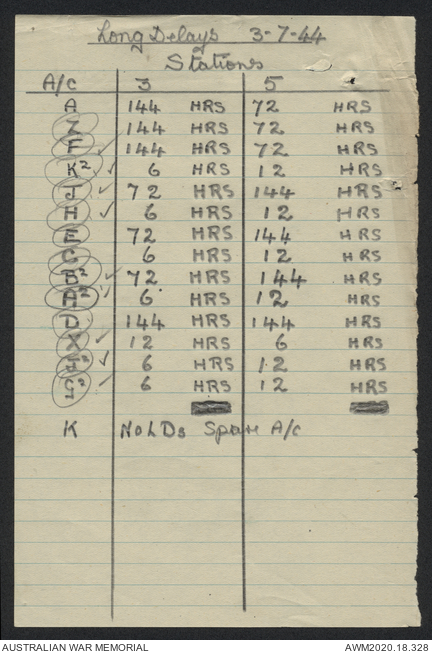 Long Delays 3-7-44
Stations
A/C 3 5
A 144 HRS 72 HRS
Z 144 HRS 72 HRS
F 144 HRS 72 HRS
K² ✓ 6 HRS 12 HRS
J ✓ 72 HRS 144 HRS
H ✓ 6 HRS 12 HRS
E 72 HRS 144 HRS
C 6 HRS 12 HRS
B² ✓ 72 HRS 144 HRS
A² ✓ 6 HRS 12 HRS
D 144 HRS 144 HRS
X ✓ 12 HRS 6 HRS
✓ 6 HRS 12 HRS
G² ✓ 6 HRS 12 HRS
K No LDs Spare A/C
AUSTRALIAN WAR MEMORIAL AWM2020.18.328